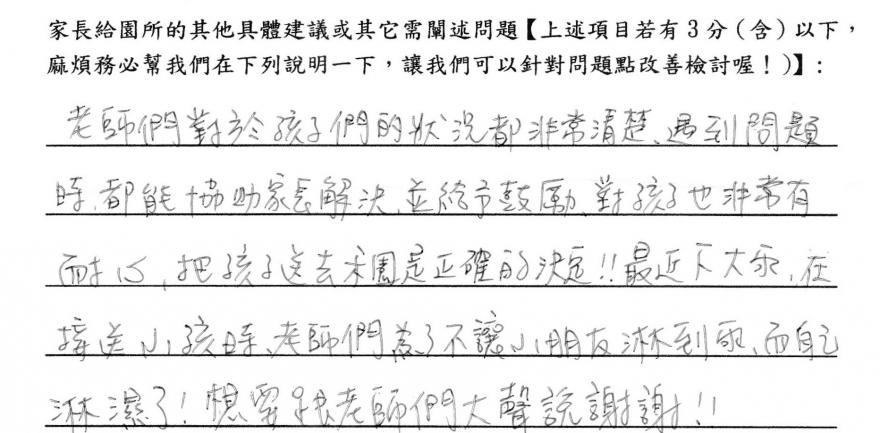 家長給園所的其他具體建議或其它需闡述問題【上述項目若有3分（含）以下，
麻煩務必幫我們在下列說明一下，讓我們可以針對問題點改善檢討喔！)】:
老師們對於孩子們的狀況都非常清楚、遇到問題
時,都能協助家長解決,並給予鼓勵、對孩子也非常有
耐心,把孩子送去禾園是正確的決定!!最近下大雨,在
接送小孩時、老師們為了不讓小朋友淋到雨,而自己
淋濕了!想要跟老師們大聲說謝謝!!